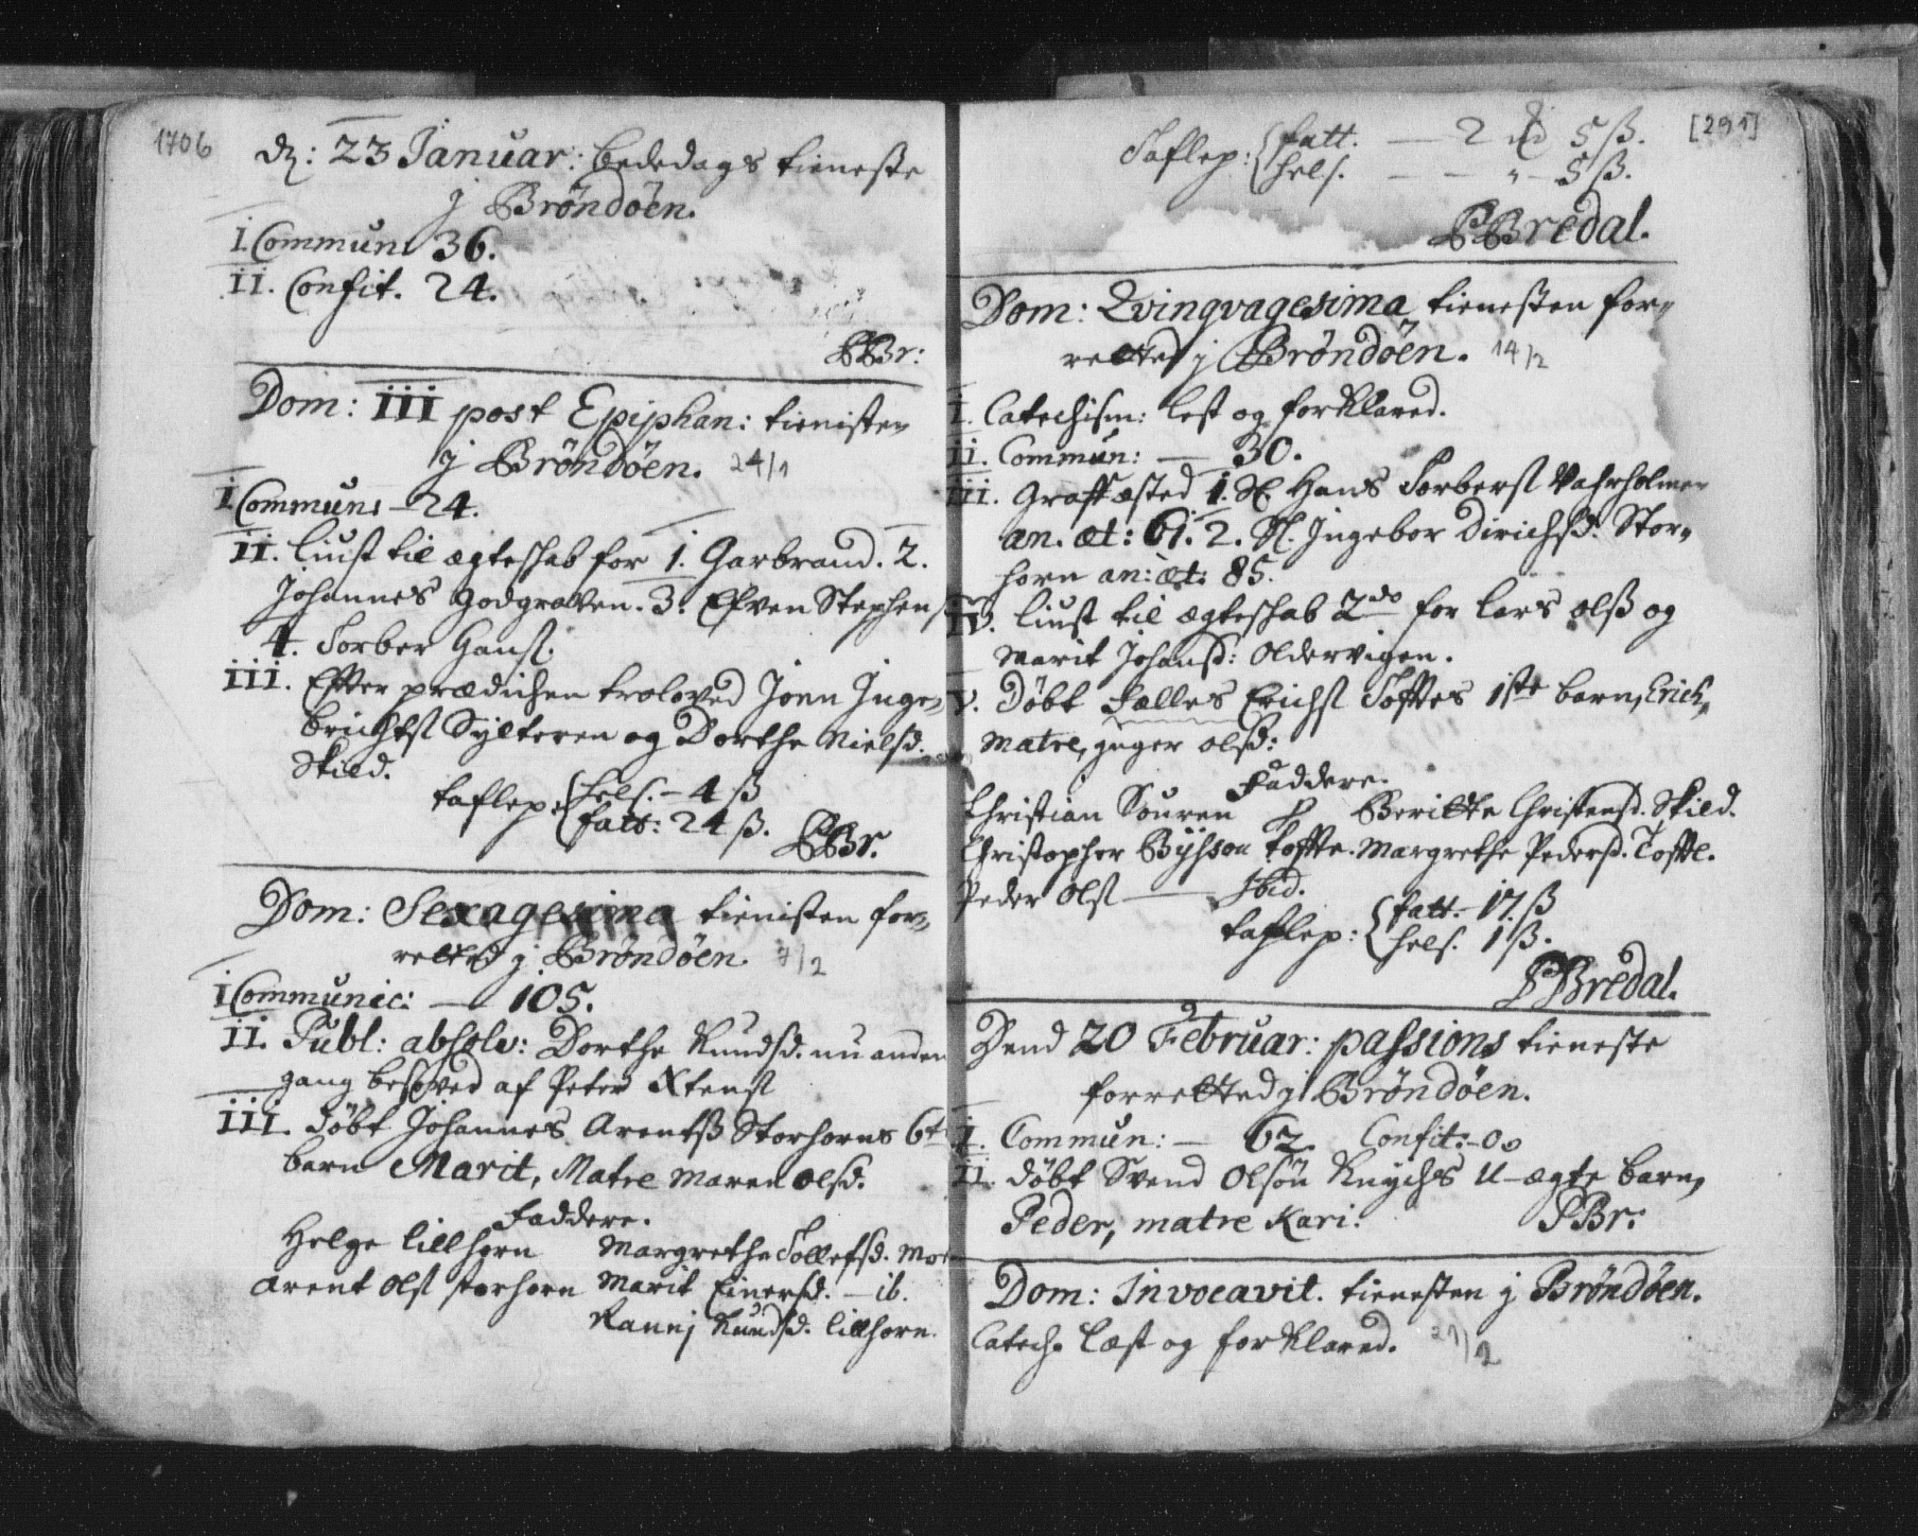 1706
dn: 23 Januar: bededags tieneste
j Brøndøen.
I. Commun: 36.
II. Confit. 24.
PBr:
Dom: III post Epiphan: tienisten
j Brøndøen. 24/1
I Commun: – 24.
II. liust til ægteskab for 1. Garbrand. 2.
Johannes Godgraven. 3. Efven Stephens
4. Torber Hans.
III. Efter prædichen troloved Joen Inge-
brichts Sylteren og Dorthe Nielsd.
Skild.
taflep. hels. – 4 ß
fatt: 24 ß.
PBr.
Dom: Sexagesima tienisten for-
retted j Brøndøen. 7/2
I Communic: — 105.
II. Publ: absolv: Dorthe Knudsd. nu anden
gang besoved af Peter Xtens
III. døbt Johannes Arentß Storhorns 6t
barn Marit, Matre Maren olsd.
Faddere.
Helge lillhorn Margrethe Tollefsd.
Arent Ols storhorn Marit Einersd. – ib.
Rannj Knudsd. lillhorn.
[291]
Taflep: fatt. — 2 5 ß.
hels. – – „ – 5 ß.
PBredal.
Dom: Qvingvagesima tienesten for-
retted j Brøndøen. 14/2
I. Catechism: lest og forklared.
II. Commun: — 30.
III. Graffæsted 1. Sl. Hans Torbers Vahrholmen
an. æt: 61. 2. Sl. Ingebor Dirichsd: Stor-
horn an: æt: 85.
IV. liust til ægteskab 2do for lars olß og
Marit Johansd: Oldervigen.
V. Døbt Tælles Erichs Toftes 1ste barn, Erich,
Matre, Inger olsd:
Faddere.
Christian Souren Beritte Christensd. Skild.
Christopher Byhson tofte. Margrethe Pedersd. Tofte.
Peder Ols — Ibid.
taflep: fatt. – 17. ß
hels. 1 ß.
PBredal.
Dend 20 Februar: passions tieneste
forretted j Brøndøen.
I. Commun: – 62. Confit: – 0.
II. døbt Svend Olsøn Knychs U-ægte barn,
Peder, matre Kari: PBr:
Dom: Invocavit. tienesten j Brøndøen.
Catech. læst og forklared. 21/2